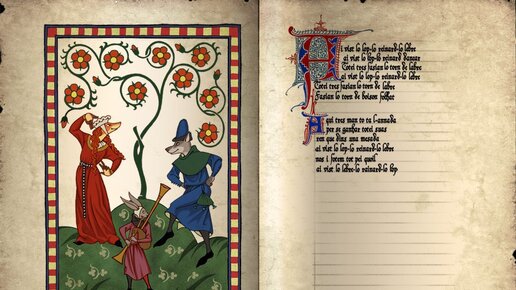 Ai vist lo lop lo reinard lo lebre
ai vist lo lop lo reinard dançar
Totei tres fasian lo torn de l'abre
ai vist lo lop lo reinard lo lebre
Totei tres fasian lo torn de l'abre
Fasian lo torn de boison folhat
Aquí tres man to ta l'annada
per se ganhar totei sous
ren que dins una mesada
ai vist lo lop lo reinard lo lebre
nos i fotem tot pel quoil
ai vist lo lebre lo reinard lo lop